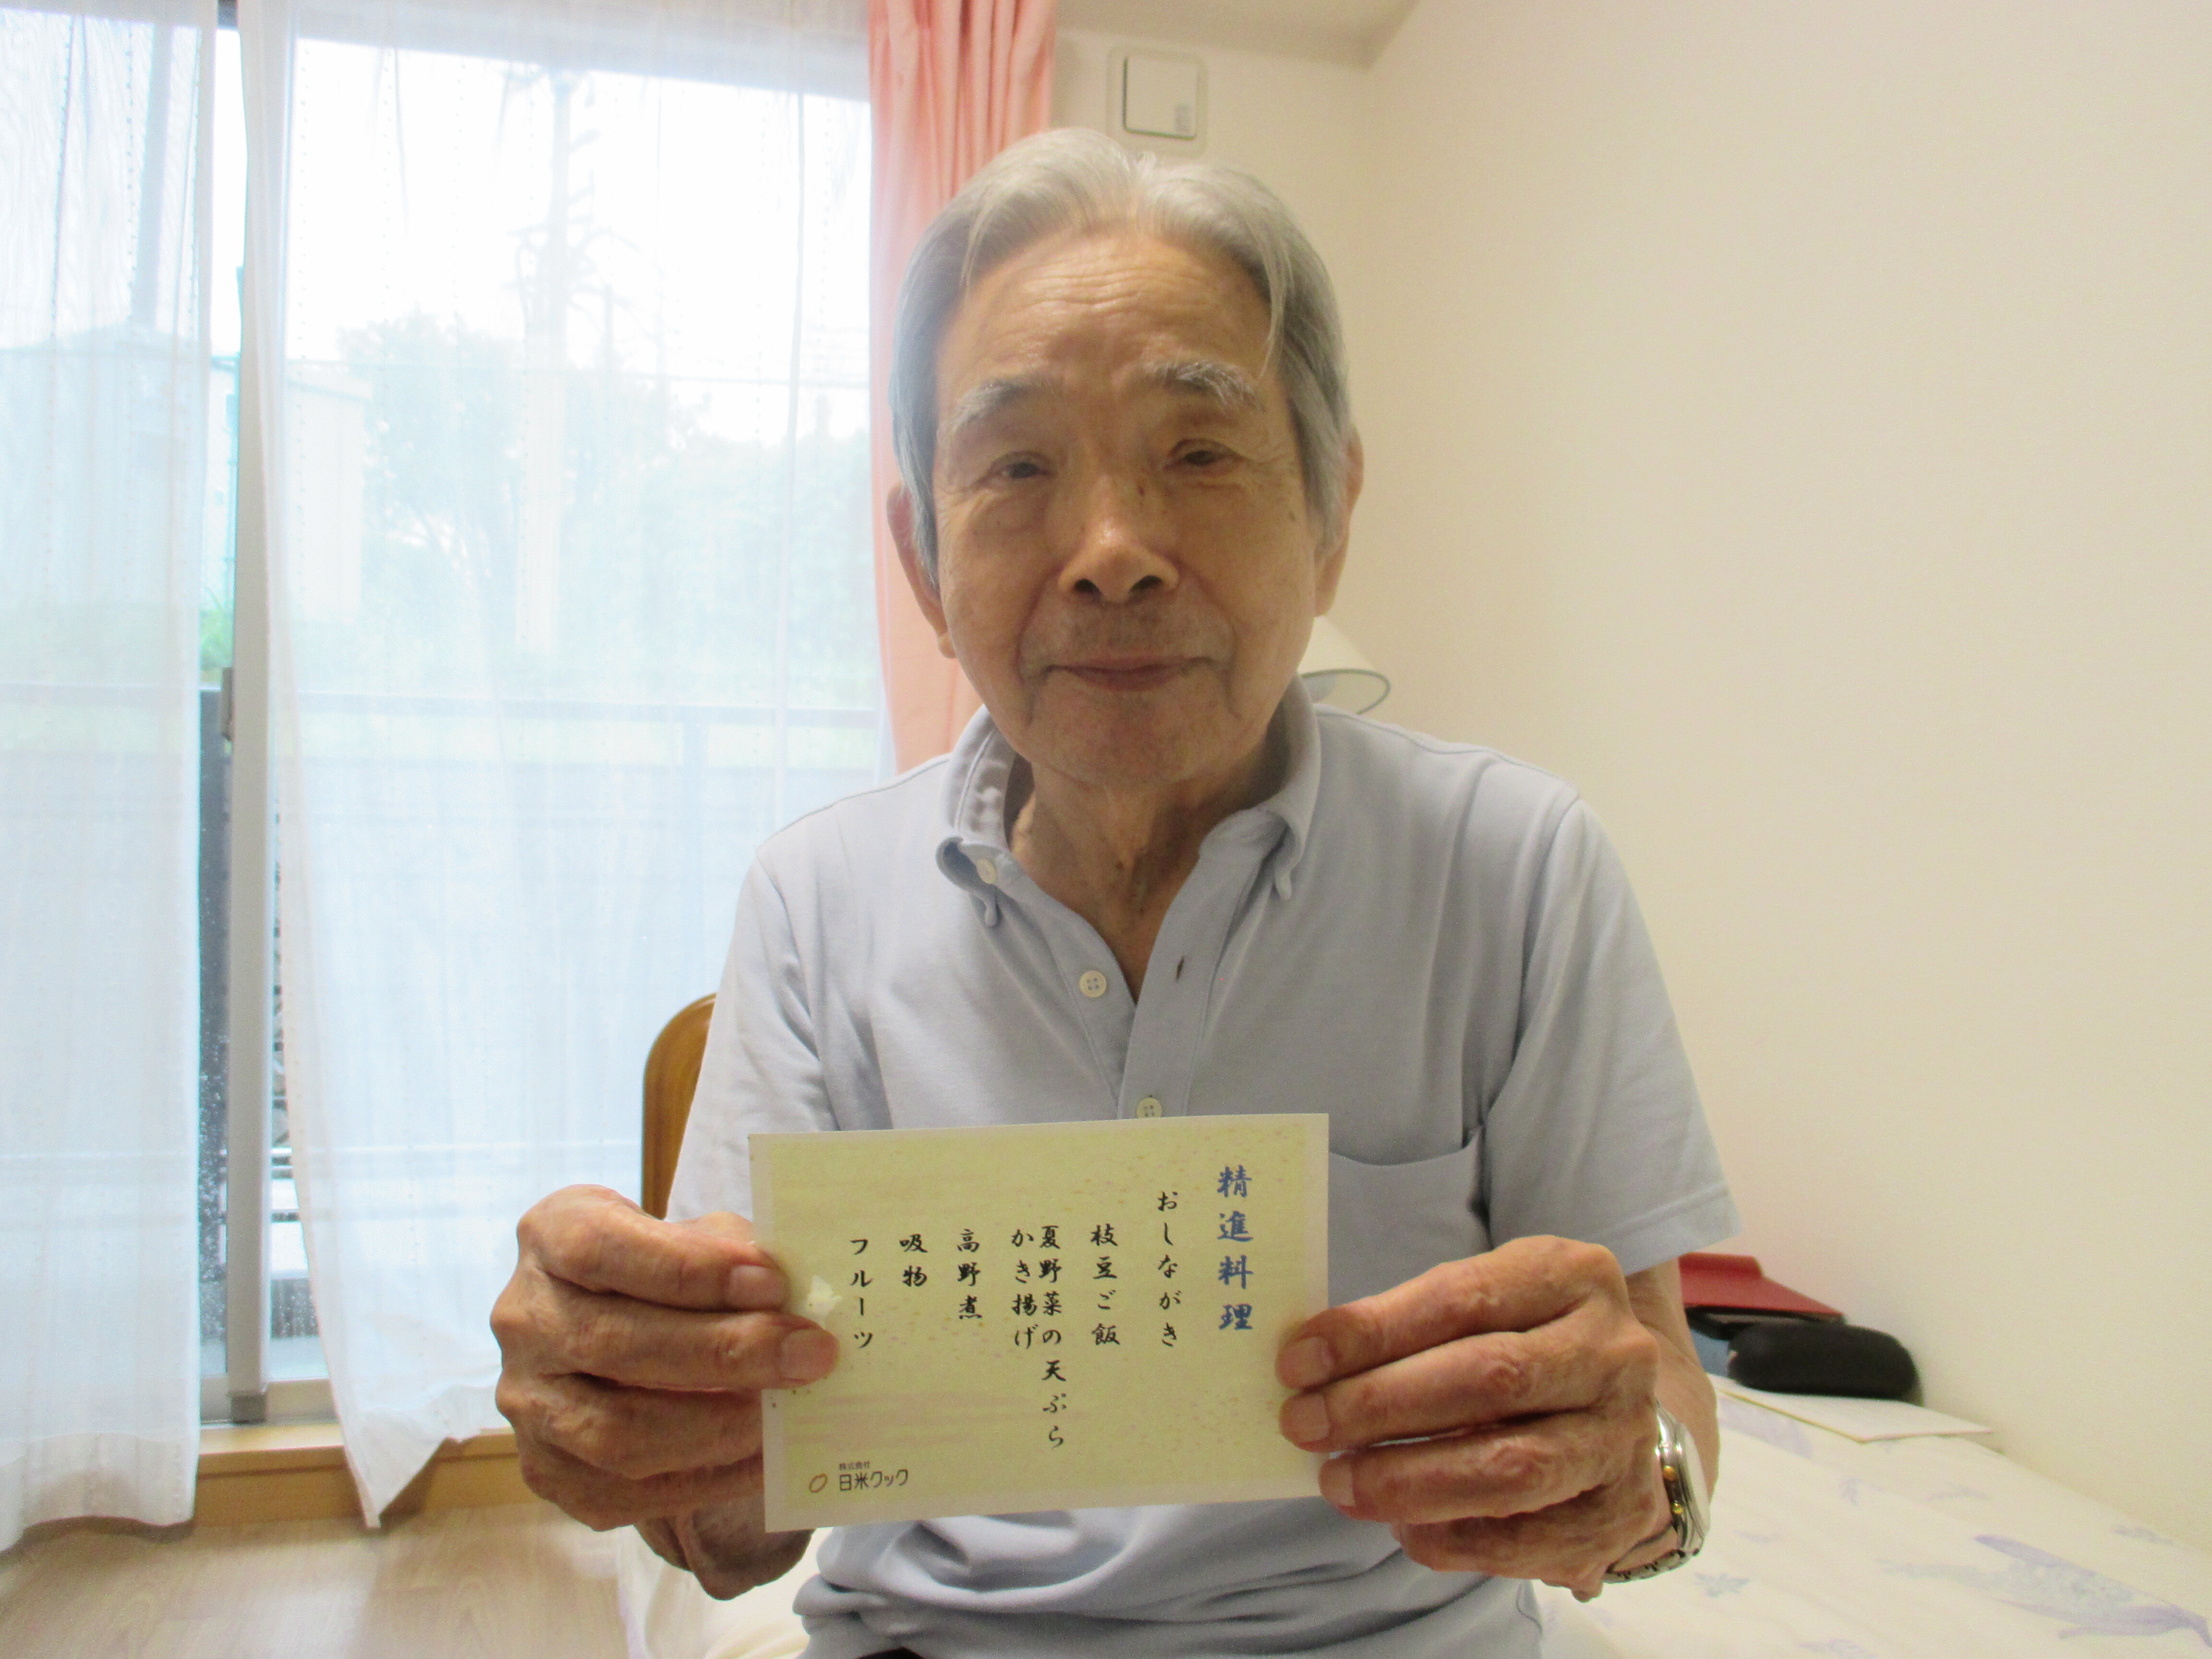 精進料理
おしながき
枝豆ご飯
夏野菜の天ぷら
かき揚げ
高野煮
吸物
フルーツ
株式会社
日米クック